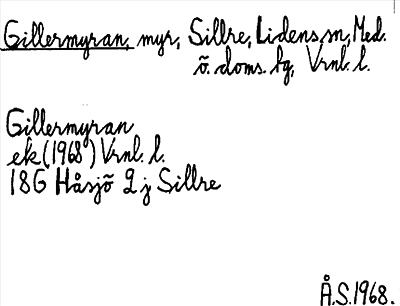 Gillermyran, myr, Sillre, Lidens sn, Med.
ö. doms. hg, Vrnl. l.
Gillermyran
ek (1968) Vrnl. l.
18G Håsjö 2 j Sillre
Å.S. 1968.